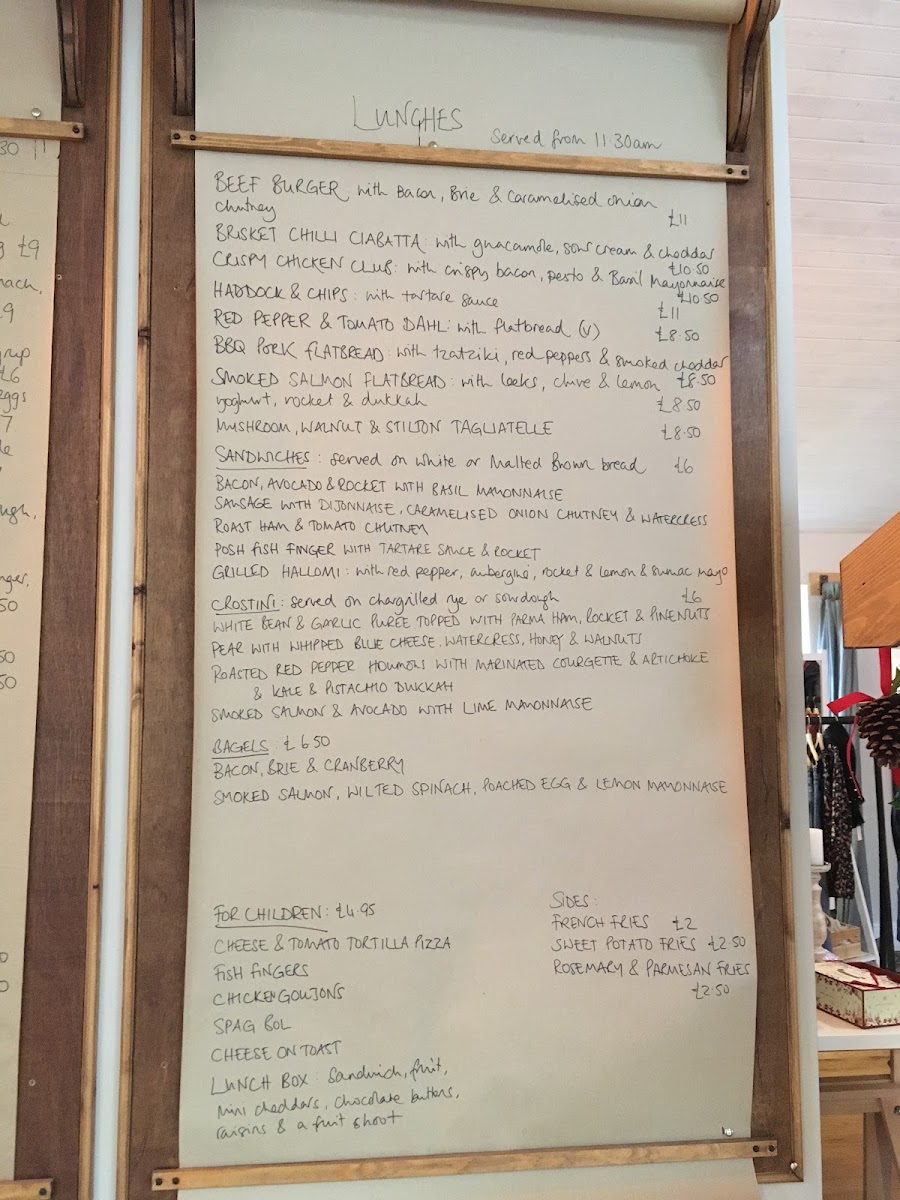 30 11
g £9
nach,
9
rup
£6
eggs
7
ugh,
nger.
50
50
50
LUNCHES
Served from 11.30am
BEEF BURGER: with Bacon, Brie & Caramelised onion
chutney £11
BRISKET CHILLI CIABATTA: with guacamole, sour cream & cheddar
£10.50
CRISPY CHICKEN CLUB: with crispy bacon, pesto & Basil Mayonnaise
£10.50
HADDOCK & CHIPS: with tartare sauce £11
RED PEPPER & TOMATO DAHL: with flatbread (v) £8.50
BBQ PORK FLATBREAD: with tzatziki, red peppers & smoked cheddar
£8.50
SMOKED SALMON FLATBREAD: with leeks, chive & lemon
yoghurt, rocket & dukkah £8.50
MUSHROOM, WALNUT & STILTON TAGLIATELLE £8.50
SANDWICHES: served on white or Malted Brown bread £6
BACON, AVOCADO & ROCKET WITH BASIL MAYONNAISE
SAUSAGE WITH DIJONNAISE, CARAMELISED ONION CHUTNEY & WATERCRESS
ROAST HAM & TOMATO CHUTNEY
POSH FISH FINGER WITH TARTARE SAUCE & ROCKET
GRILLED HALLOMI: with red pepper, aubergine, rocket & lemon & sumac mayo
CROSTINI: served on chargrilled rye or sourdough £6
WHITE BEAN & GARLIC PUREE TOPPED WITH PARMA HAM, ROCKET & PINENUTS
PEAR WITH WHIPPED BLUE CHEESE, WATERCRESS, HONEY & WALNUTS
ROASTED RED PEPPER HOUMOUS WITH MARINATED COURGETTE & ARTICHOKE
& KALE & PISTACHIO DUKKAH
SMOKED SALMON & AVOCADO WITH LIME MAYONNAISE
BAGELS: £6.50
BACON, BRIE & CRANBERRY
SMOKED SALMON, WILTED SPINACH, POACHED EGG & LEMON MAYONNAISE
FOR CHILDREN: £4.95
CHEESE & TOMATO TORTILLA PIZZA
FISH FINGERS
CHICKEN GOUJONS
SPAG BOL
CHEESE ON TOAST
LUNCH BOX: Sandwich, fruit,
mini cheddars, chocolate buttons,
raisins & a fruit shoot
SIDES:
FRENCH FRIES £2
SWEET POTATO FRIES £2.50
ROSEMARY & PARMESAN FRIES
£2.50